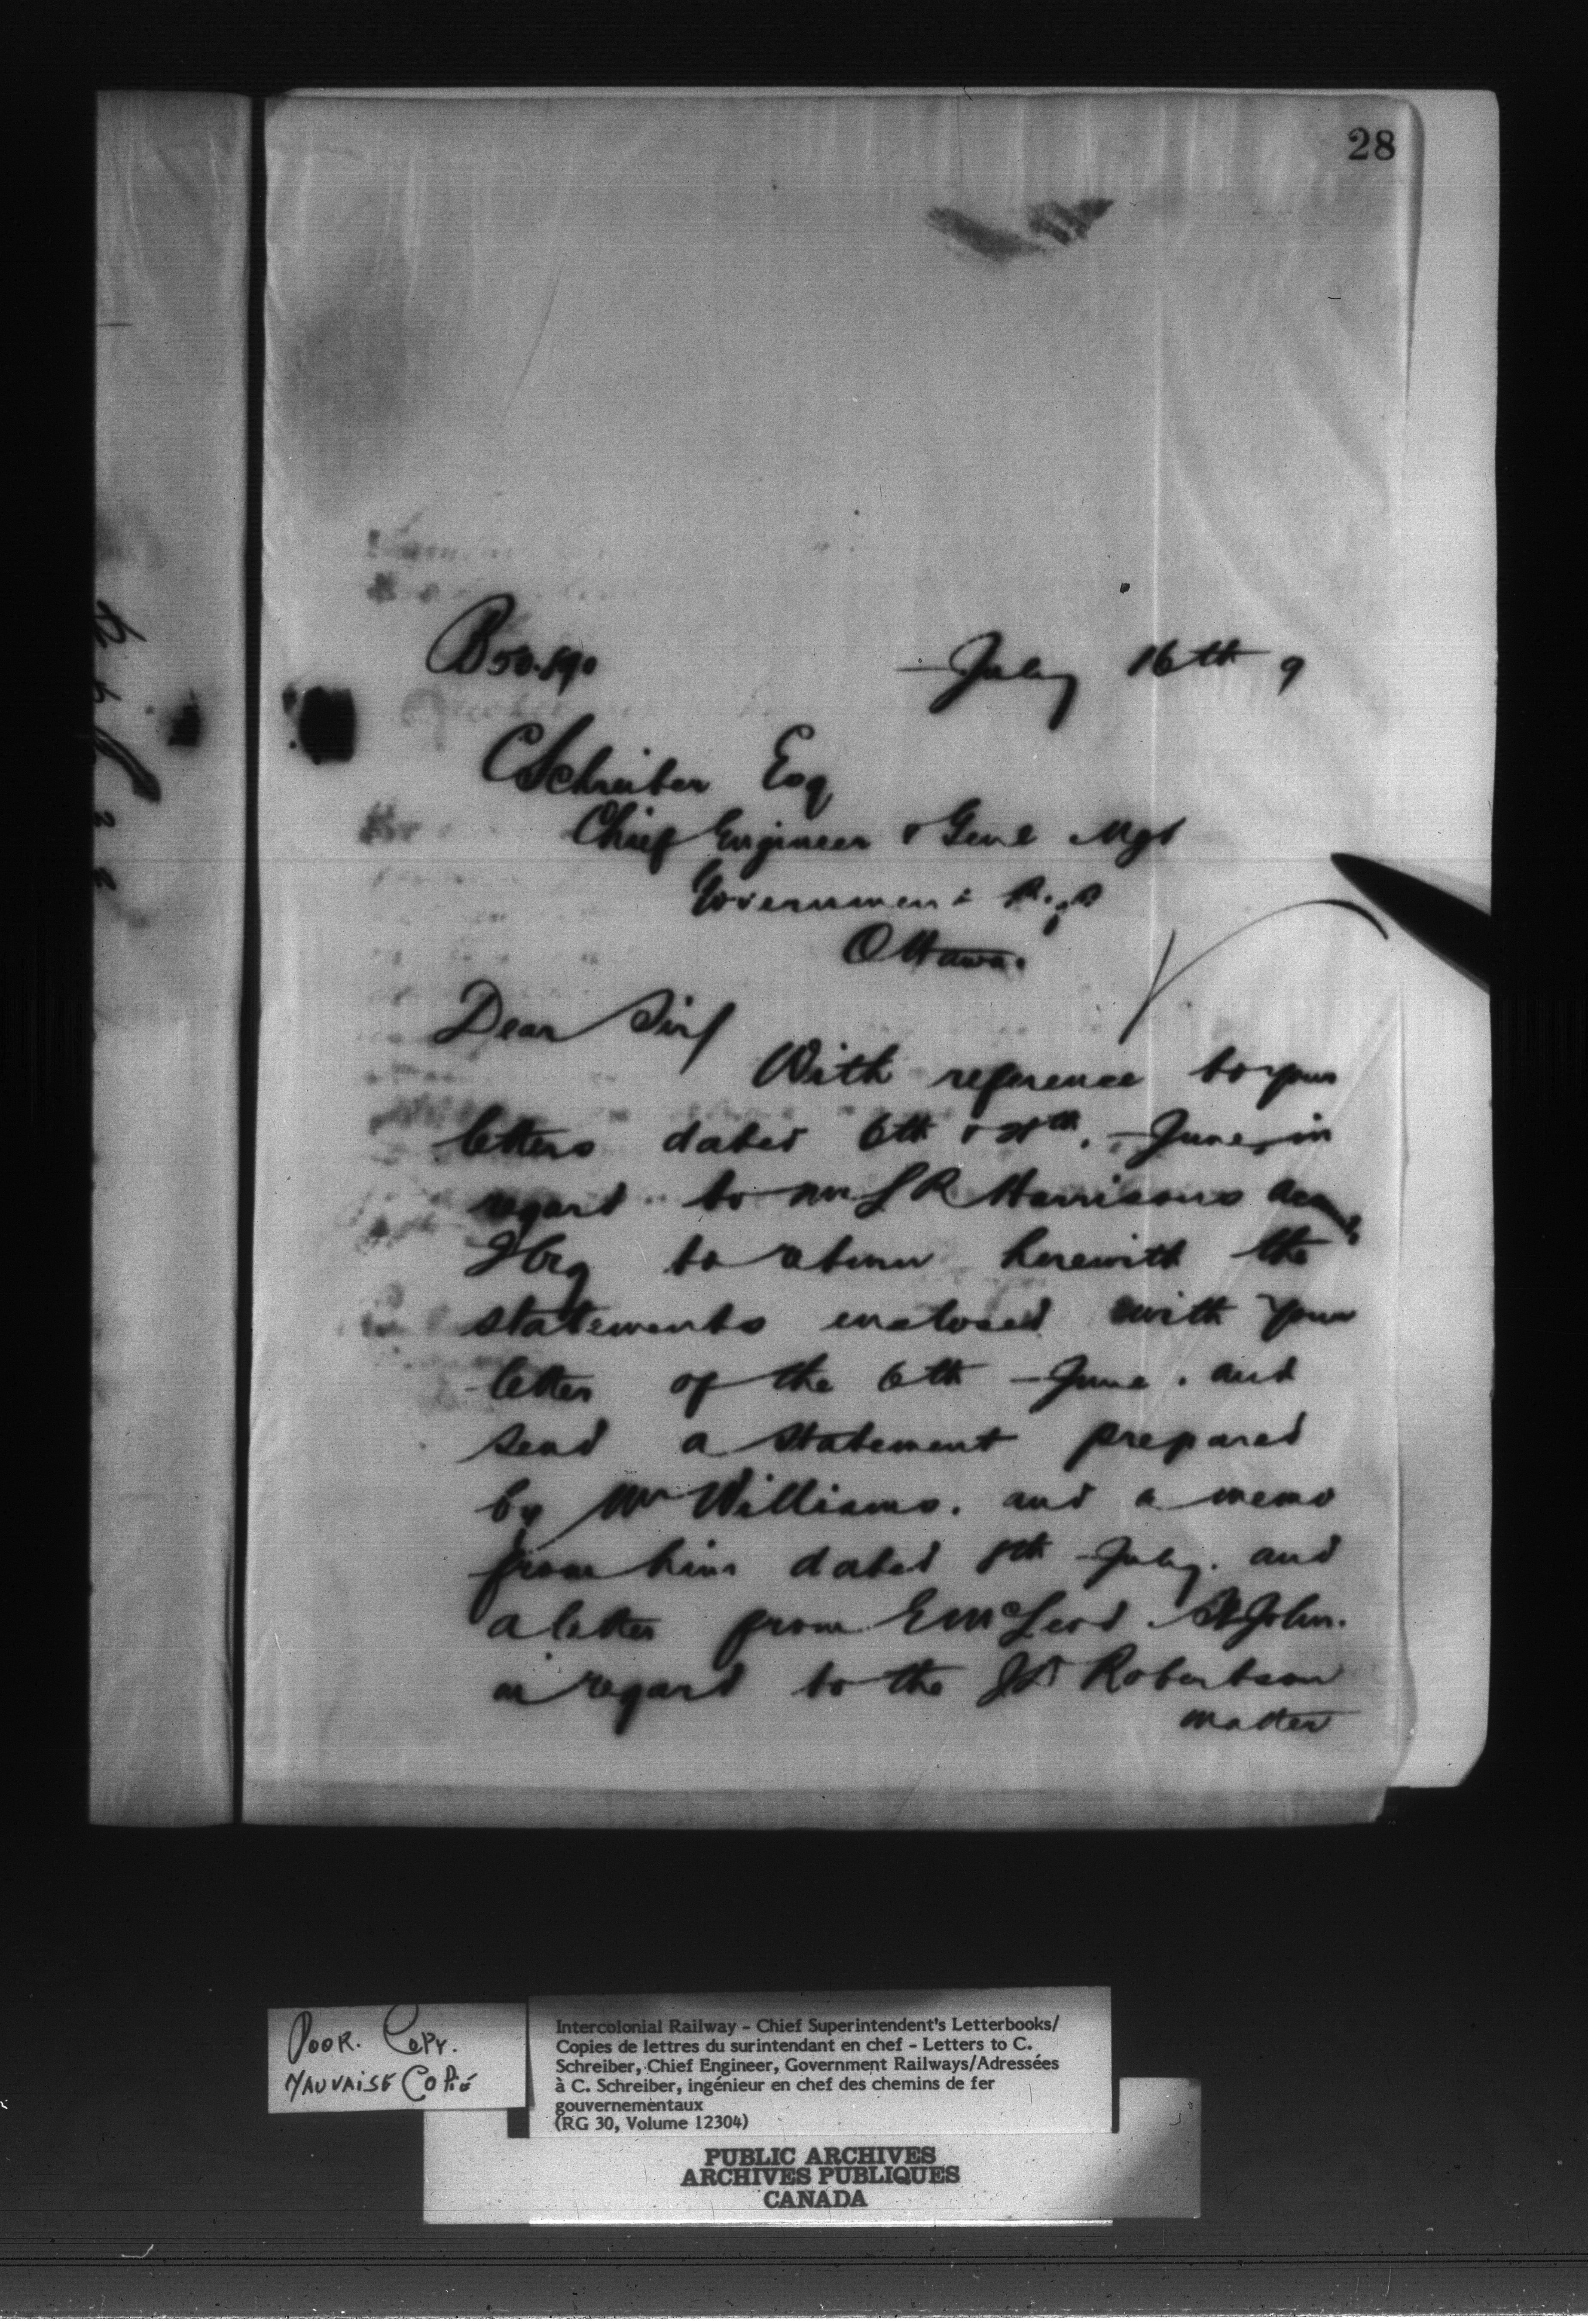 28
July 16th 9
C Schreiber Esq
Chief Engineer & Genl Mgr
Government
Ottawa.
Dear Sir
With reference to your
letters dated 6th & June, in
regard to Mr L R Harrisons
I beg to return herewith the
statements enclosed with your
letter of the 6th June. and
send a statement prepared
by Mr Williams. and a memo
from him dated 8th July. and
a letter from E McLeod St John.
in regard to the Robertson
matter
POOR. COPY.
MAUVAISE COPIE
Intercolonial Railway - Chief Superintendent's Letterbooks/
Copies de lettres du surintendant en chef - Letters to C.
Schreiber, Chief Engineer, Government Railways/Adressées
à C. Schreiber, ingénieur en chef des chemins de fer
gouvernementaux
(RG 30, Volume 12304)
PUBLIC ARCHIVES
ARCHIVES PUBLIQUES
CANADA